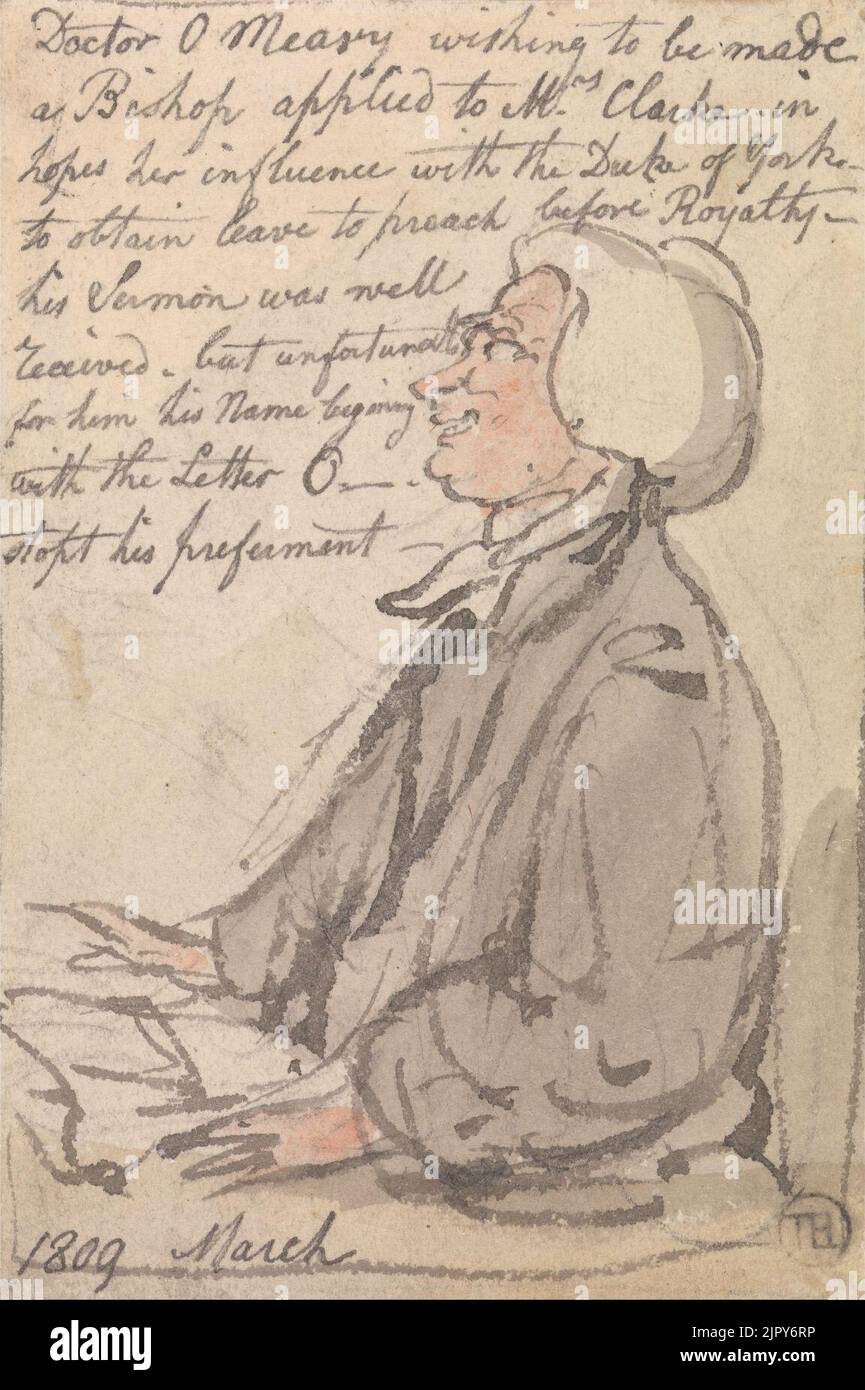 Doctor O Meary wishing to be made
a Bishop applied to Mrs Clarke in
hopes her influence with the Duke of York
to obtain leave to preach before Royalty—
his Sermon was well
received - but unfortunat
for him his Name begining
with the Letter O—.
stopt his preferment —
1809 March
TH
alamy
Image ID: 2JPY6RP
www.alamy.com